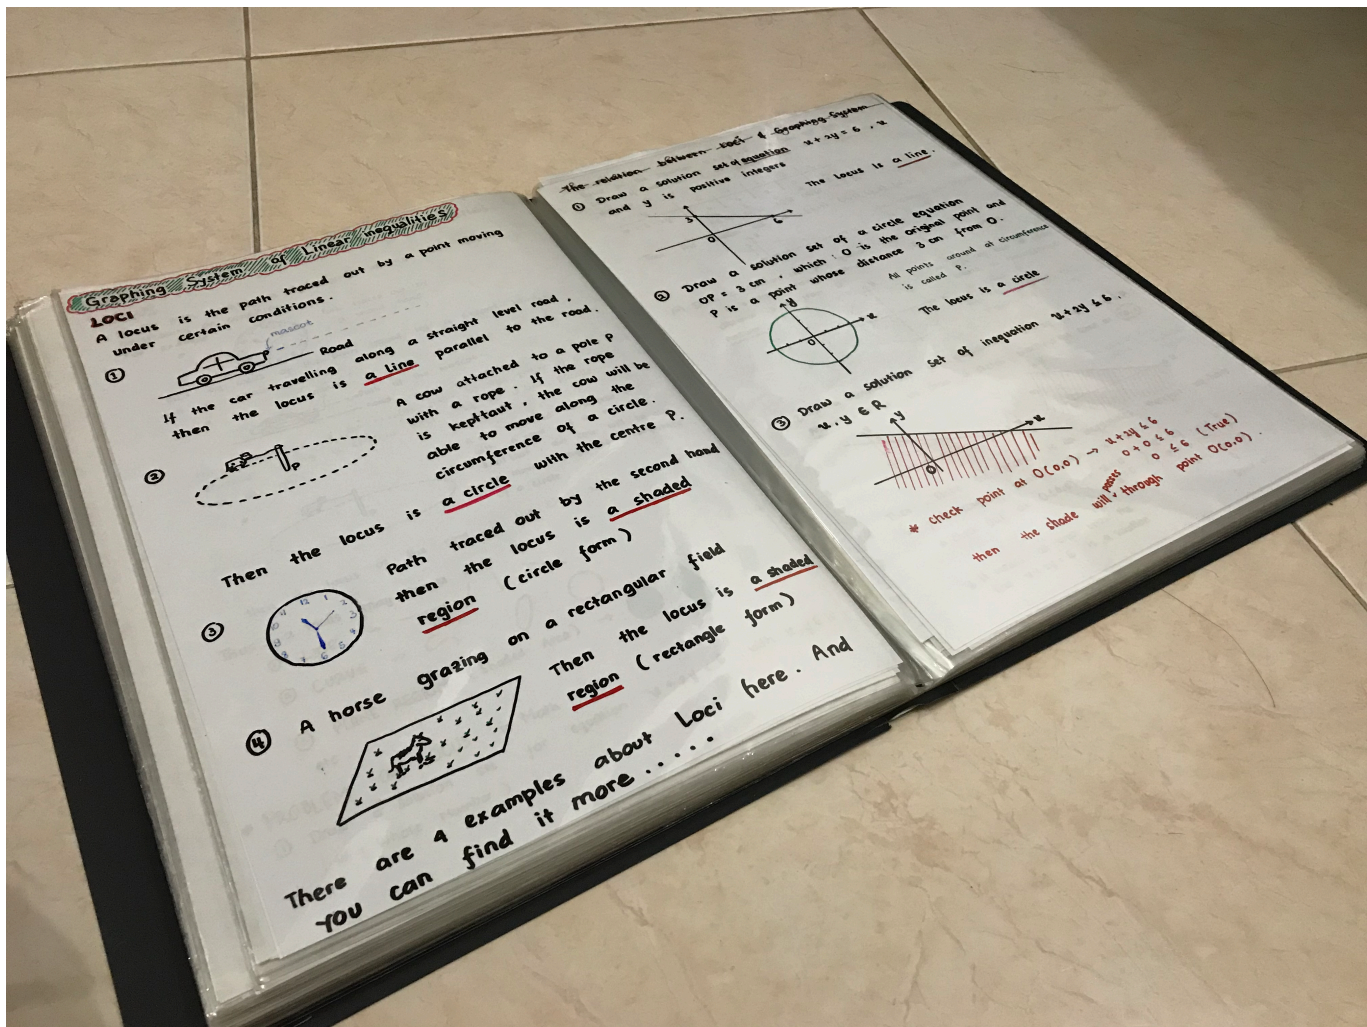 Graphing System of Linear inequalities
LOCI
A locus is the path traced out by a point moving
under certain conditions.
mascot
① Road
If the car travelling along a straight level road,
then the locus is a line parallel to the road.
② P
A cow attached to a pole P
with a rope. If the rope
is kept taut, the cow will be
able to move along the
circumference of a circle.
Then the locus is a circle with the centre P.
③ Path traced out by the second hand
then the locus is a shaded
region (circle form)
④ A horse grazing on a rectangular field
Then the locus is a shaded
region (rectangle form)
There are 4 examples about Loci here. And
you can find it more.....
The relation between Loci & Graphing System
① Draw a solution set of equation x + 2y = 6, x
and y is positive integers
The locus is a line.
3
6
0
② Draw a solution set of a circle equation
OP = 3 cm, which: O is the original point and
P is a point whose distance 3 cm from O.
All points around at circumference
is called P.
The locus is a circle
y
x
0
③ Draw a solution set of inequation x + 2y ≤ 6.
x, y ∈ R
y
x
0
* check point at O(0,0) → x + 2y ≤ 6
0 + 0 ≤ 6
0 ≤ 6 (True)
then the shade will passes through point O(0,0).